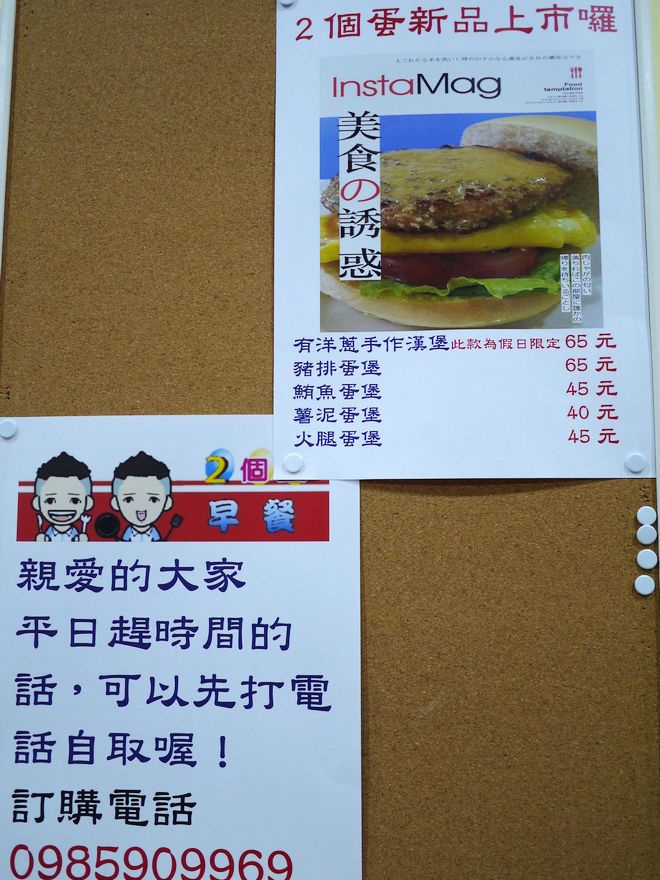 2個蛋新品上市囉
InstaMag
Food
temptation
美食の誘惑
肉じゃがの匂い
満ちればこの部屋に誰かの
帰りを待ちいるごとし
有洋蔥手作漢堡此款為假日限定 65 元
豬排蛋堡 65 元
鮪魚蛋堡 45 元
薯泥蛋堡 40 元
火腿蛋堡 45 元
2個
早餐
親愛的大家
平日趕時間的
話，可以先打電
話自取喔！
訂購電話
0985909969